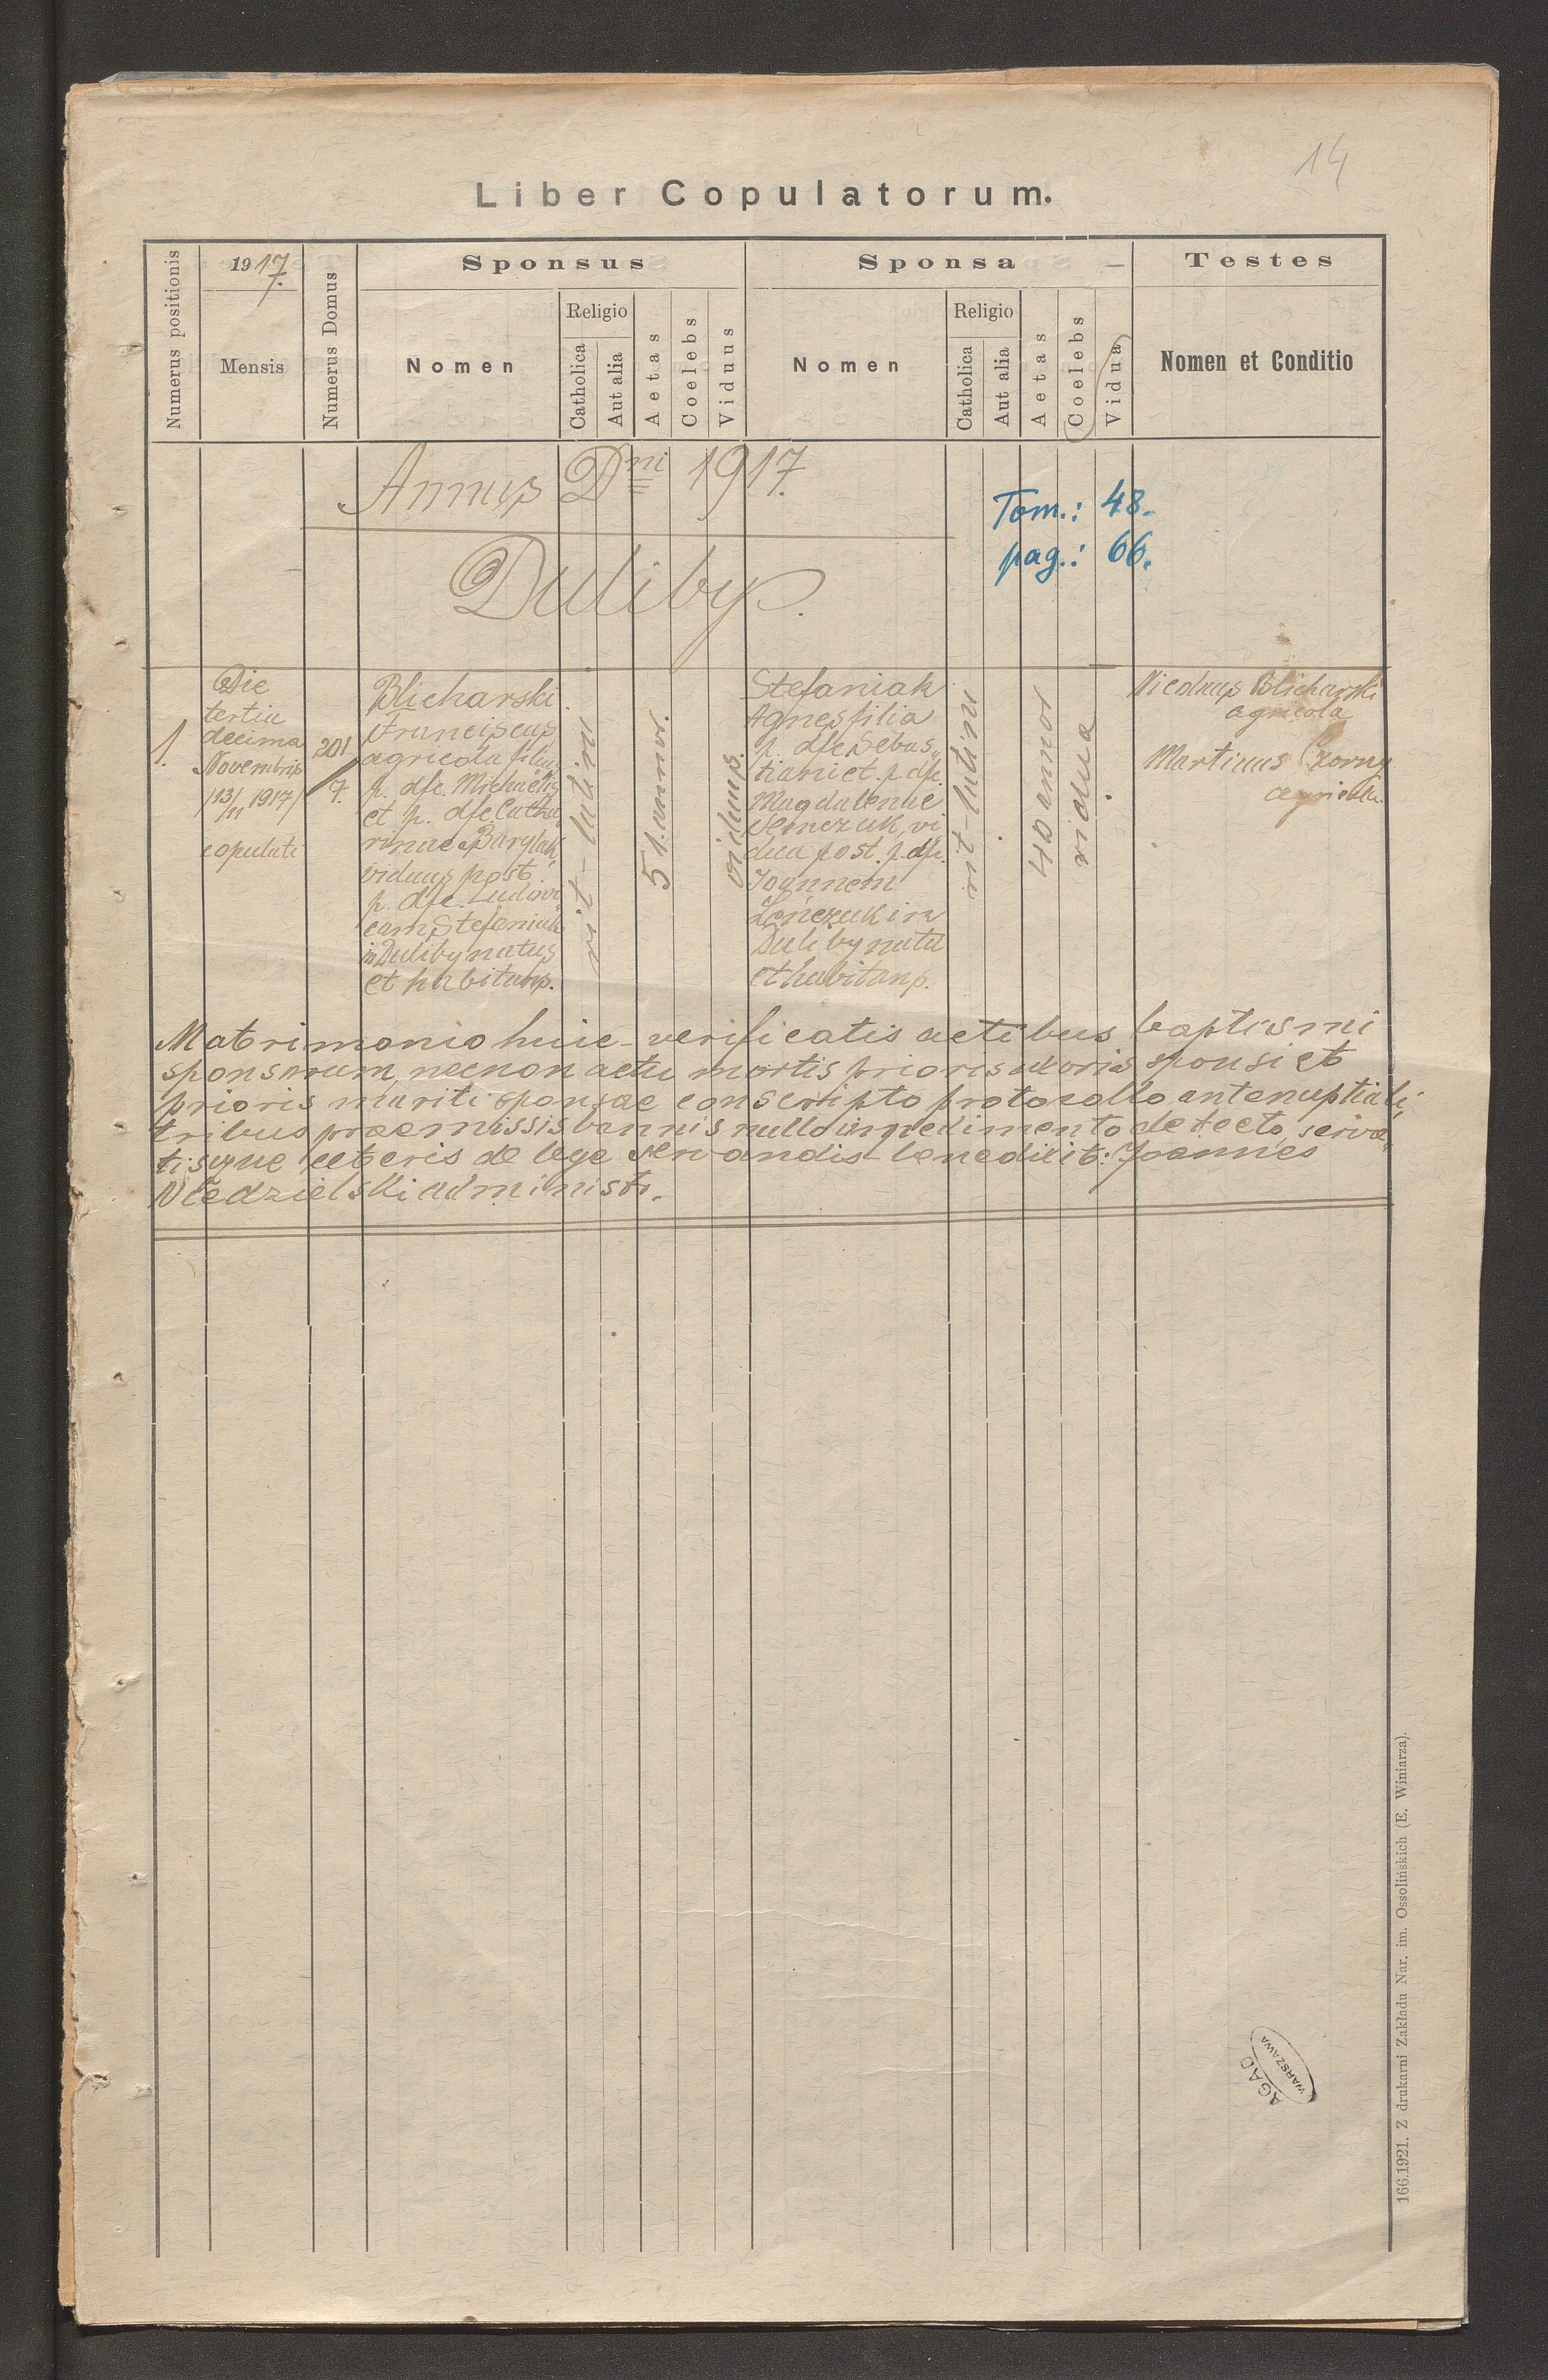 14
Liber Copulatorum.
Numerus positionis
1917.
Mensis
Numerus Domus
Sponsus
Nomen
Religio
Catholica
Aut alia
Aetas
Coelebs
Viduus
Sponsa
Nomen
Religio
Catholica
Aut alia
Aetas
Coelebs
Vidua
Testes
Nomen et Conditio
Annus Dni 1917.
Tom.: 48.
pag.: 66.
Duliby.
1.
Die
tertia
decima
Novembris
/13/11 1917/
copulati
201
7.
Blicharski
Franciscus
agricola filius
p. dfc. Michaelis
et p. dfc. Catha
rinae Barylak
viduus post
p. dfc. Ludovi
cam Stefaniak
in Duliby natus
et habitans.
rit-latini
51. annor.
viduus.
Stefaniak
Agnes filia
p. dfc Sebas„
tiani et p. dfc.
Magdalenae
Semczuk, vi
dua post. p. dfc.
Joannem
Łończuk in
Duliby nata
et habitans.
rit-latini
40 annor
vidua
Nicolaus Blicharski
agricola
Martinus Czorny
agricola.
Matrimonio huic verificatis actibus baptismi
sponsorum, necnon actu mortis prioris uxoris sponsi et
prioris mariti sponsae conscripto protocollo antenuptiali,
tribus praemissis bannis nullo impedimento detecto, serva„
tisque ceteris de lege servandis benedixit: Joannes
Niedzielski administr.
166.1921. Z drukarni Zakładu Nar. im. Ossolińskich (E. Winiarza).
AGAD
WARSZAWA